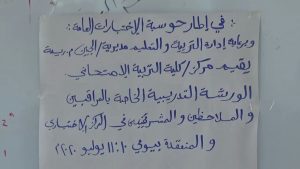 في إطار حوسبة الاختبارات العامة:
وبرعاية إدارة التربية والتعليم مديرية/الجبين م. ريمة
يقيم مركز/كلية التربية الامتحاني
الورشة التدريبية الخاصة بالمراقبين
والملاحظين والمشرفين في المركز الاختباري
والمنعقدة بيومي ١٠-١١ يوليو ٢٠٢٠